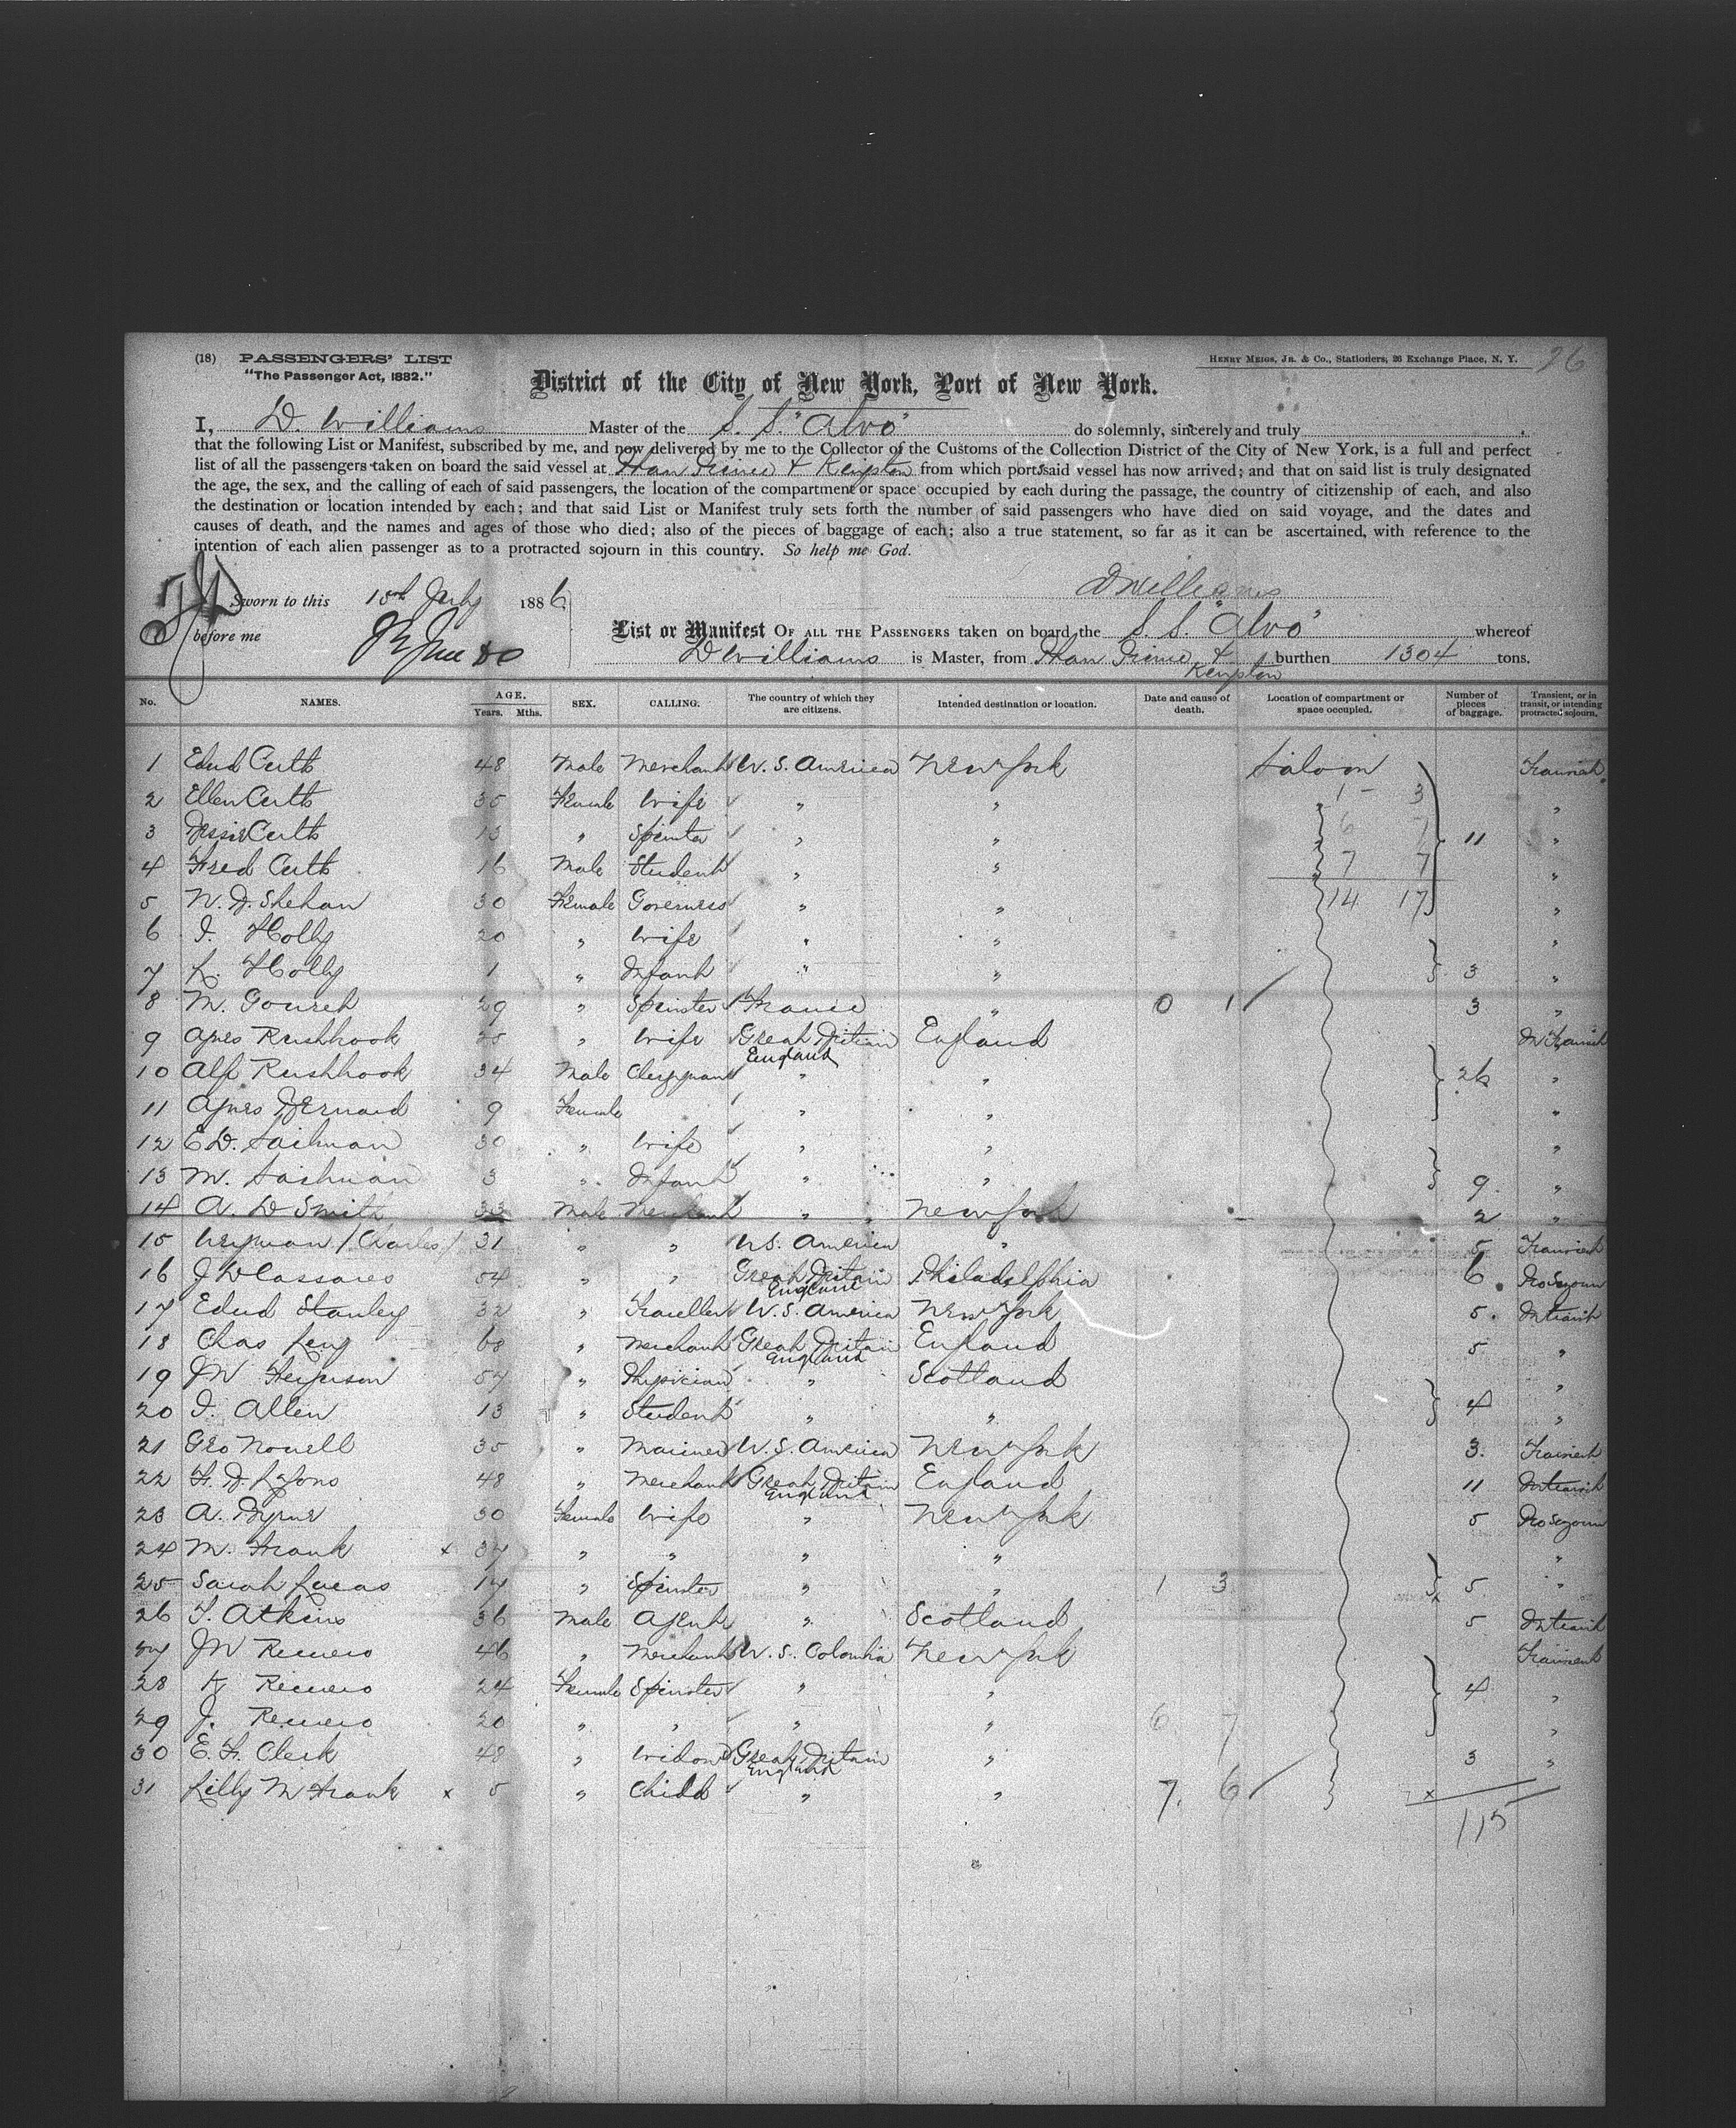 (18) PASSENGERS' LIST
HENRY MEIGS, JR. & CO., Stationers, 26 Exchange Place, N. Y. 26
"The Passenger Act, 1882."
District of the City of New York, Port of New York.
I, D. Williams Master of the S. S. "Alvo" do solemnly, sincerely and truly
that the following List or Manifest, subscribed by me, and now delivered by me to the Collector of the Customs of the Collection District of the City of New York, is a full and perfect
list of all the passengers taken on board the said vessel at & Kingston from which port said vessel has now arrived; and that on said list is truly designated
the age, the sex, and the calling of each of said passengers, the location of the compartment or space occupied by each during the passage, the country of citizenship of each, and also
the destination or location intended by each; and that said List or Manifest truly sets forth the number of said passengers who have died on said voyage, and the dates and
causes of death, and the names and ages of those who died; also of the pieces of baggage of each; also a true statement, so far as it can be ascertained, with reference to the
intention of each alien passenger as to a protracted sojourn in this country. So help me God.
DWilliams
Sworn to this 15th July 1886
before me
List or Manifest OF ALL THE PASSENGERS taken on board the S. S. "Alvo" whereof
DWilliams is Master, from & Kingston burthen 1304 tons.
No. NAMES. AGE. Years. Mths. SEX. CALLING. The country of which they are citizens. Intended destination or location. Date and cause of death. Location of compartment or space occupied. Number of pieces of baggage. Transient, or in transit, or intending protracted sojourn.
1 48 Male Merchant U. S. America New York Saloon Transient
2 Ellen 35 Female Wife " " 1 - 3 "
3 13 " Spinster " " 6 7 11 "
4 Fred 16 Male Student " " 7 7 "
5 N. D. Shehan 30 Female Governess " " 14 17 "
6 I. Holly 20 " Wife " " "
7 L. Holly 1 " Infant " " 3 "
8 M. 29 " Spinster France " 0 1 3 "
9 Agnes Rushhook 35 " Wife Great Britain England England In Transit
10 Alf Rushhook 34 Male Clergyman " " 26 "
11 Agnes Bernard 9 Female " " "
12 E D. 30 " Wife " " "
13 M. 3 " Infant " " 9 "
14 A. D Smith 33 Male Merchant " New York 2 "
15 Weyman (Charles) 31 " " U.S. America " 5 Transient
16 J D Cassares 54 " " Great Britain England Philadelphia 6 Pro Sojourn
17 Edud Stanley 32 " Traveller U. S. America New York 5 In transit
18 Chas Leng 68 " Merchant Great Britain England England 5 "
19 JW Ferguson 57 " Physician " Scotland "
20 I. Allen 13 " Student " " 4 "
21 Geo Nowell 35 " Mariner U. S. America New York 3 Transient
22 F. D. Lyons 48 " Merchant Great Britain England England 11 In transit
23 A. Byrne 30 Female Wife " New York 5 Pro Sojourn
24 M. Frank x 37 " " " " "
25 Sarah Lucas 17 " Spinster " " 1 3 5 "
26 T. Atkins 36 Male Agent " Scotland 5 In transit
27 JM 46 " Merchant U. S. Colombia New York Transient
28 24 Female Spinster " " 4 "
29 J. 20 " " " " 6 7 "
30 E. F. Clerk 48 " Widow Great Britain England " 3 "
31 Lilly M Frank x 5 " Child " " 7. 6 x
115